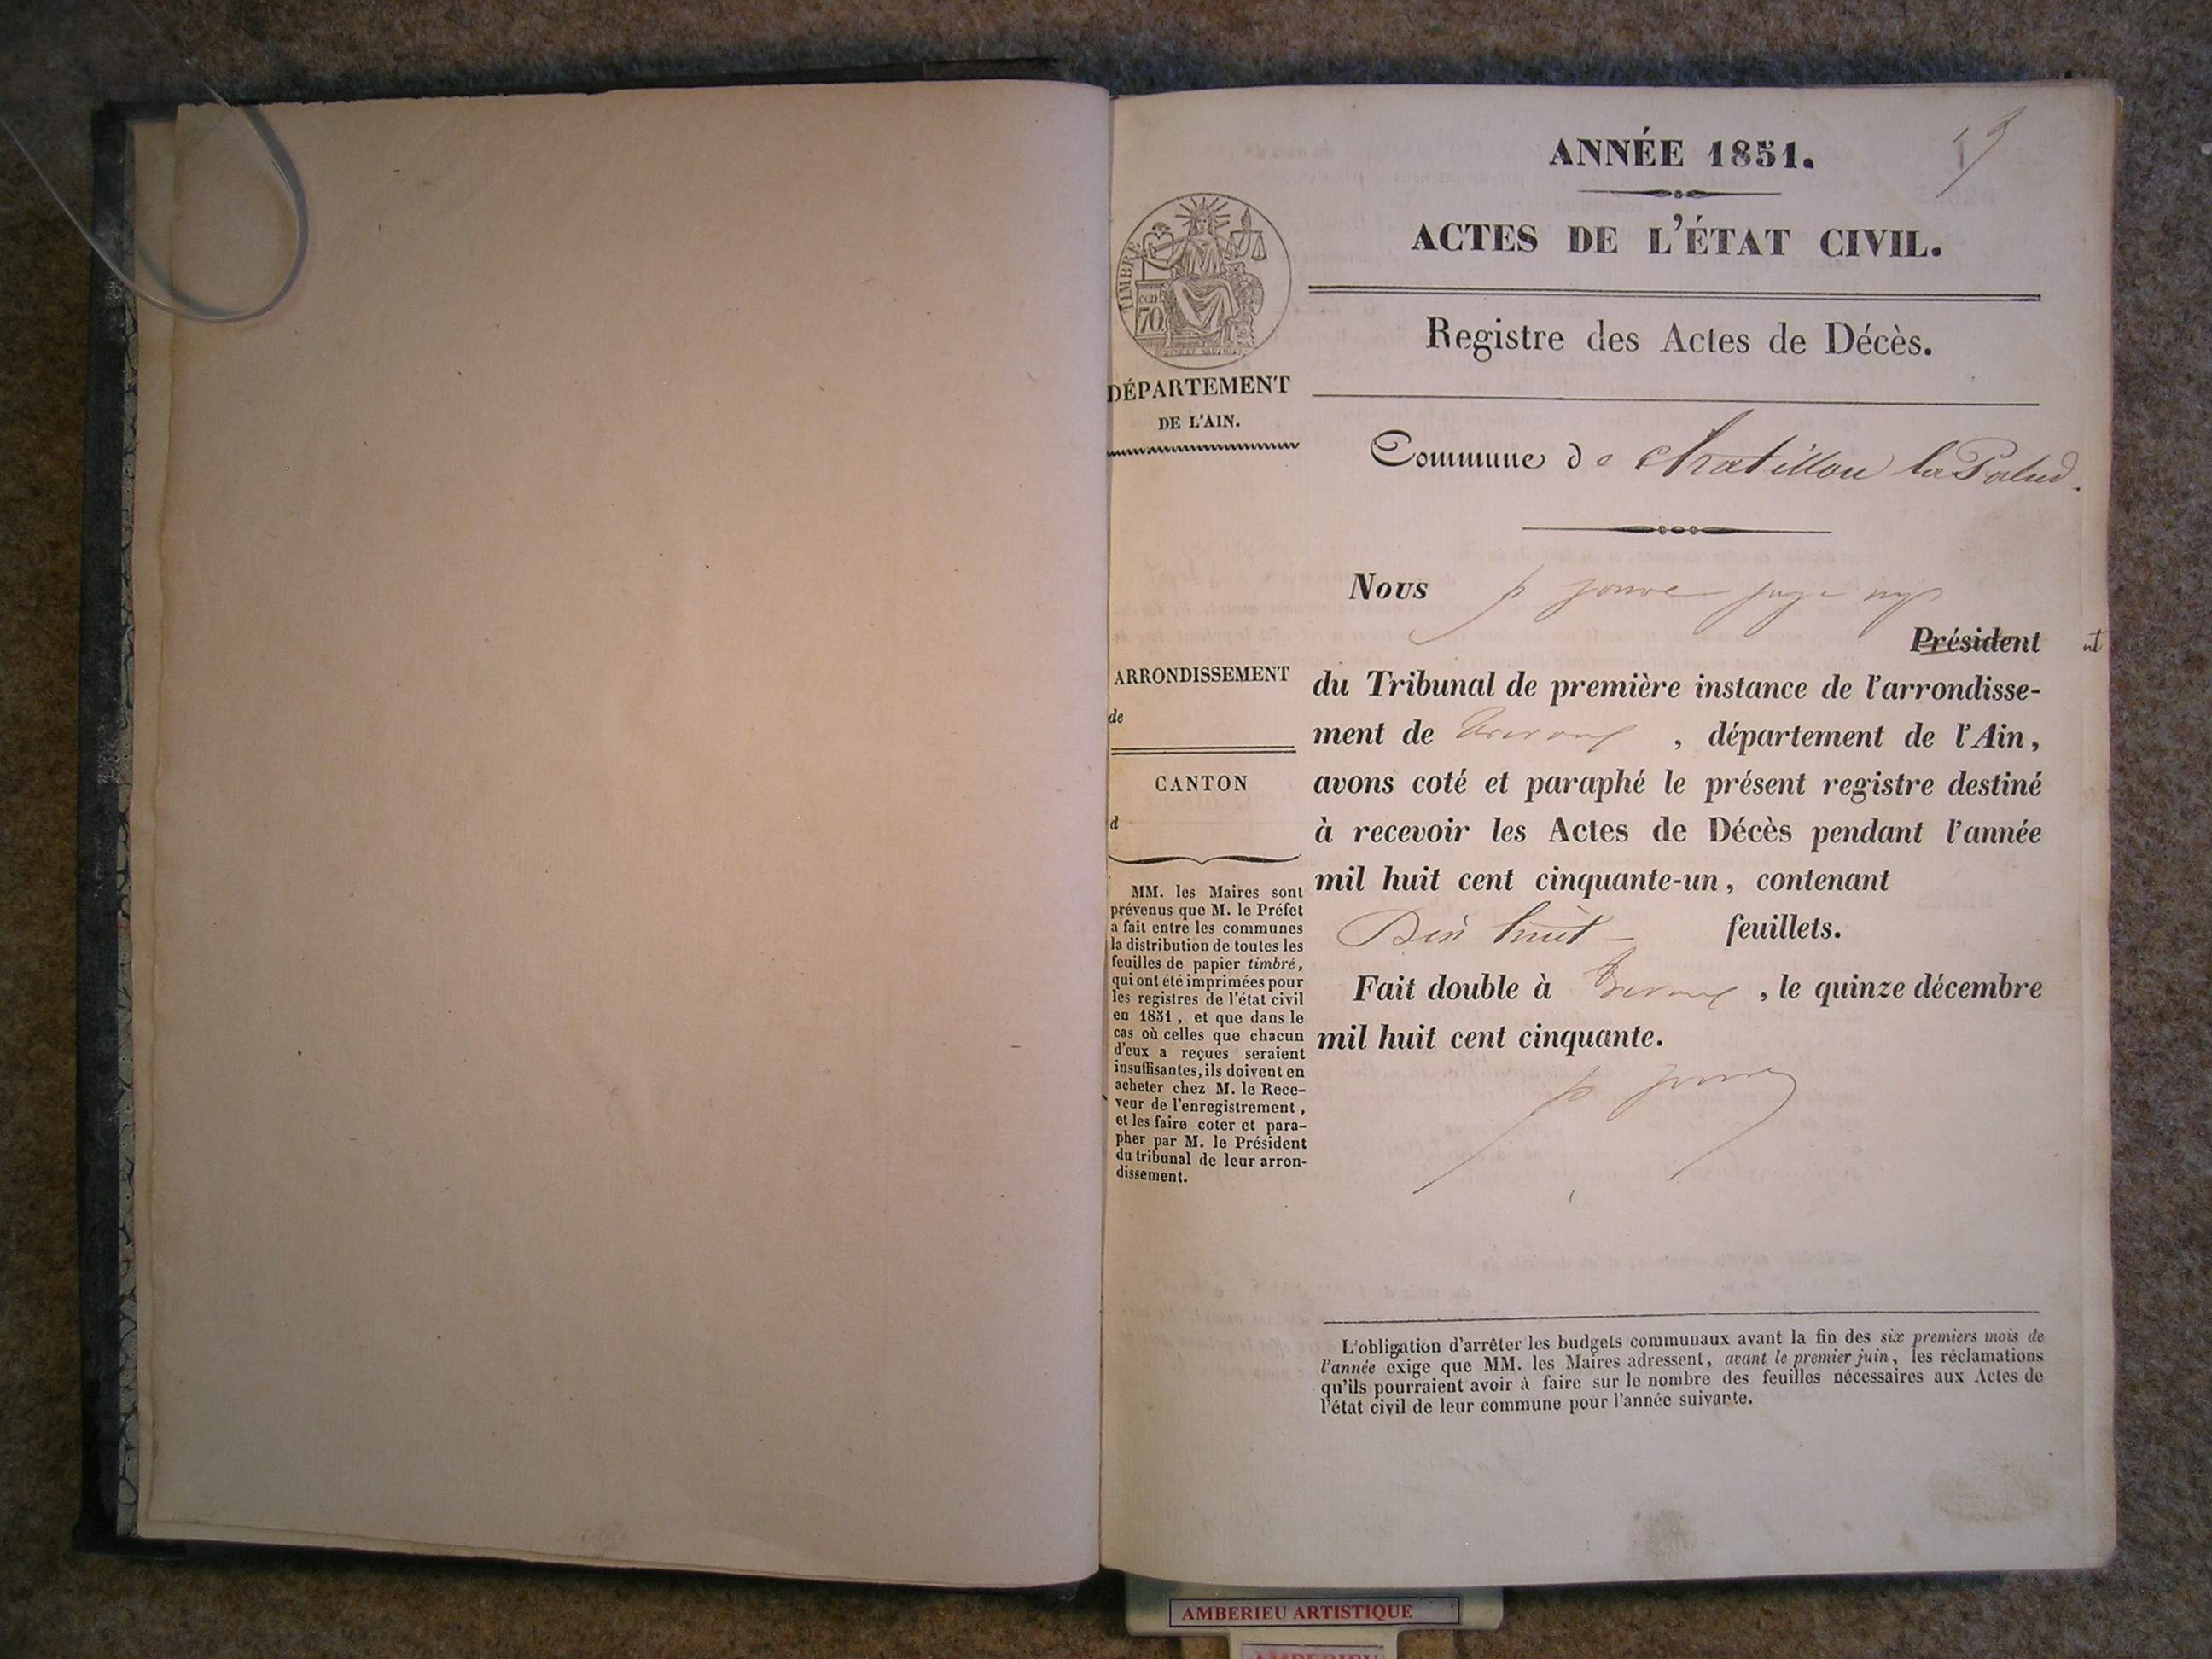 ANNÉE 1851.
ACTES DE L'ÉTAT CIVIL.
TIMBRE
cen
70
Registre des Actes de Décès.
DÉPARTEMENT
DE L'AIN.
Commune de Chatillon la Palud.
Nous p jouve juge
Président
ARRONDISSEMENT
de
CANTON
d
du Tribunal de première instance de l'arrondisse-
ment de Trevoux, département de l'Ain,
avons coté et paraphé le présent registre destiné
à recevoir les Actes de Décès pendant l'année
mil huit cent cinquante-un, contenant
Dix huit feuillets.
Fait double à Trevoux, le quinze décembre
mil huit cent cinquante.
p jouve
MM. les Maires sont
prévenus que M. le Préfet
a fait entre les communes
la distribution de toutes les
feuilles de papier timbré,
qui ont été imprimées pour
les registres de l'état civil
en 1851, et que dans le
cas où celles que chacun
d'eux a reçues seraient
insuffisantes, ils doivent en
acheter chez M. le Rece-
veur de l'enregistrement,
et les faire coter et para-
pher par M. le Président
du tribunal de leur arron-
dissement.
L'obligation d'arrêter les budgets communaux avant la fin des six premiers mois de
l'année exige que MM. les Maires adressent, avant le premier juin, les réclamations
qu'ils pourraient avoir à faire sur le nombre des feuilles nécessaires aux Actes de
l'état civil de leur commune pour l'année suivante.
AMBERIEU ARTISTIQUE
AMBERIEU